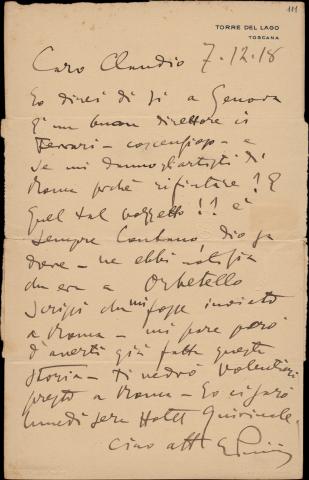 111
TORRE DEL LAGO
TOSCANA
Caro Claudio 7.12.18
Io direi di sì a Genova
C'è un buon direttore in
Ferrari - coscenzioso - e
se mi danno gli artisti di
Roma perché rifiutare? E
quel tal pozzetto!! è
sempre lontano, dio sa
dove - ne ebbi notizia
che era a Orbetello
scrissi che mi fosse inviato
a Roma - mi pare però
d'averti già fatta questa
storia - Ti vedrò volentieri
presto a Roma - Io ci sarò
lunedì sera Hotel Quirinale.
ciao aff